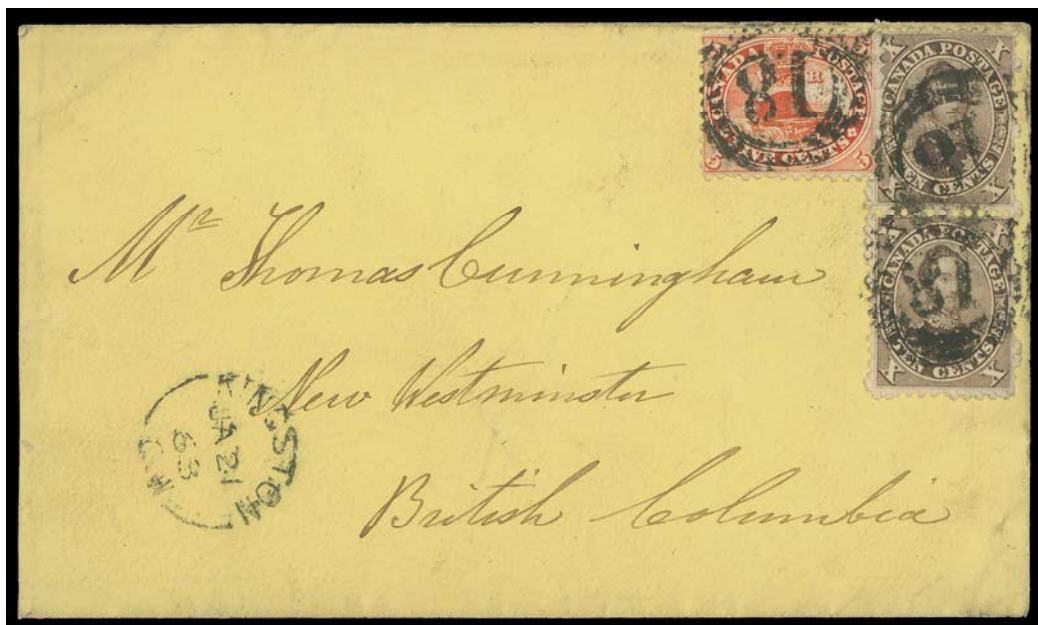 CANADA POSTAGE
FIVE CENTS
5 5
X X
CANADA POSTAGE
TEN CENTS
X X
X X
CANADA POSTAGE
TEN CENTS
X X
Mr Thomas Cunningham
New Westminster
British Columbia
KINGSTON
JA 21
63
C.W